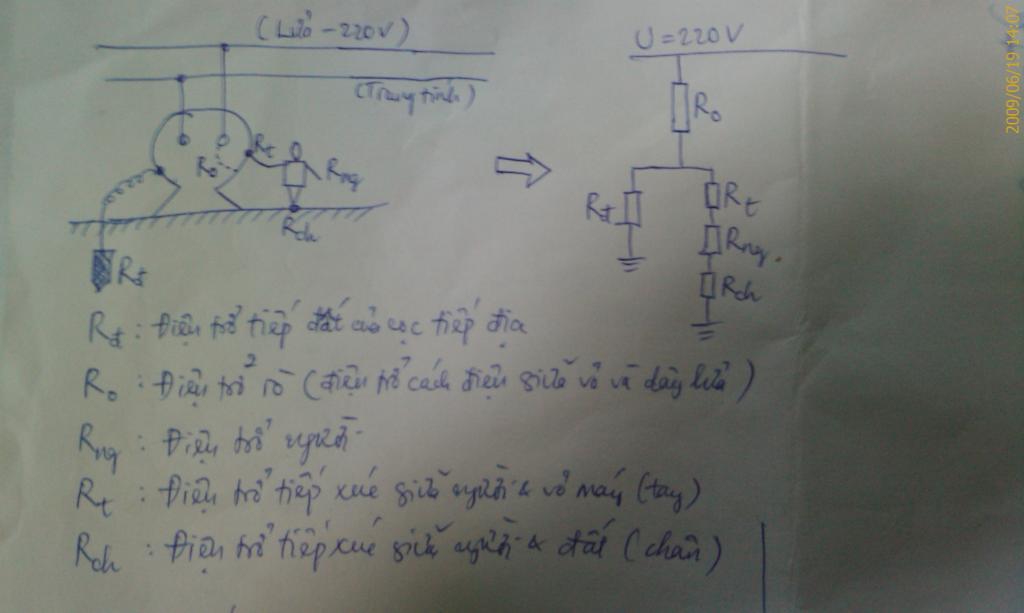 (Lửa - 220V)
(Trung tính)
Rt
Ro
Rng
Rch
Rđ
U = 220V
Ro
Rđ
Rt
Rng
Rch
Rđ : Điện trở tiếp đất của cọc tiếp địa
Ro : Điện trở rò (điện trở cách điện giữa vỏ và dây lửa)
Rng : Điện trở người
Rt : Điện trở tiếp xúc giữa người & vỏ máy (tay)
Rch : Điện trở tiếp xúc giữa người & đất (chân)
2009/06/19 14:07